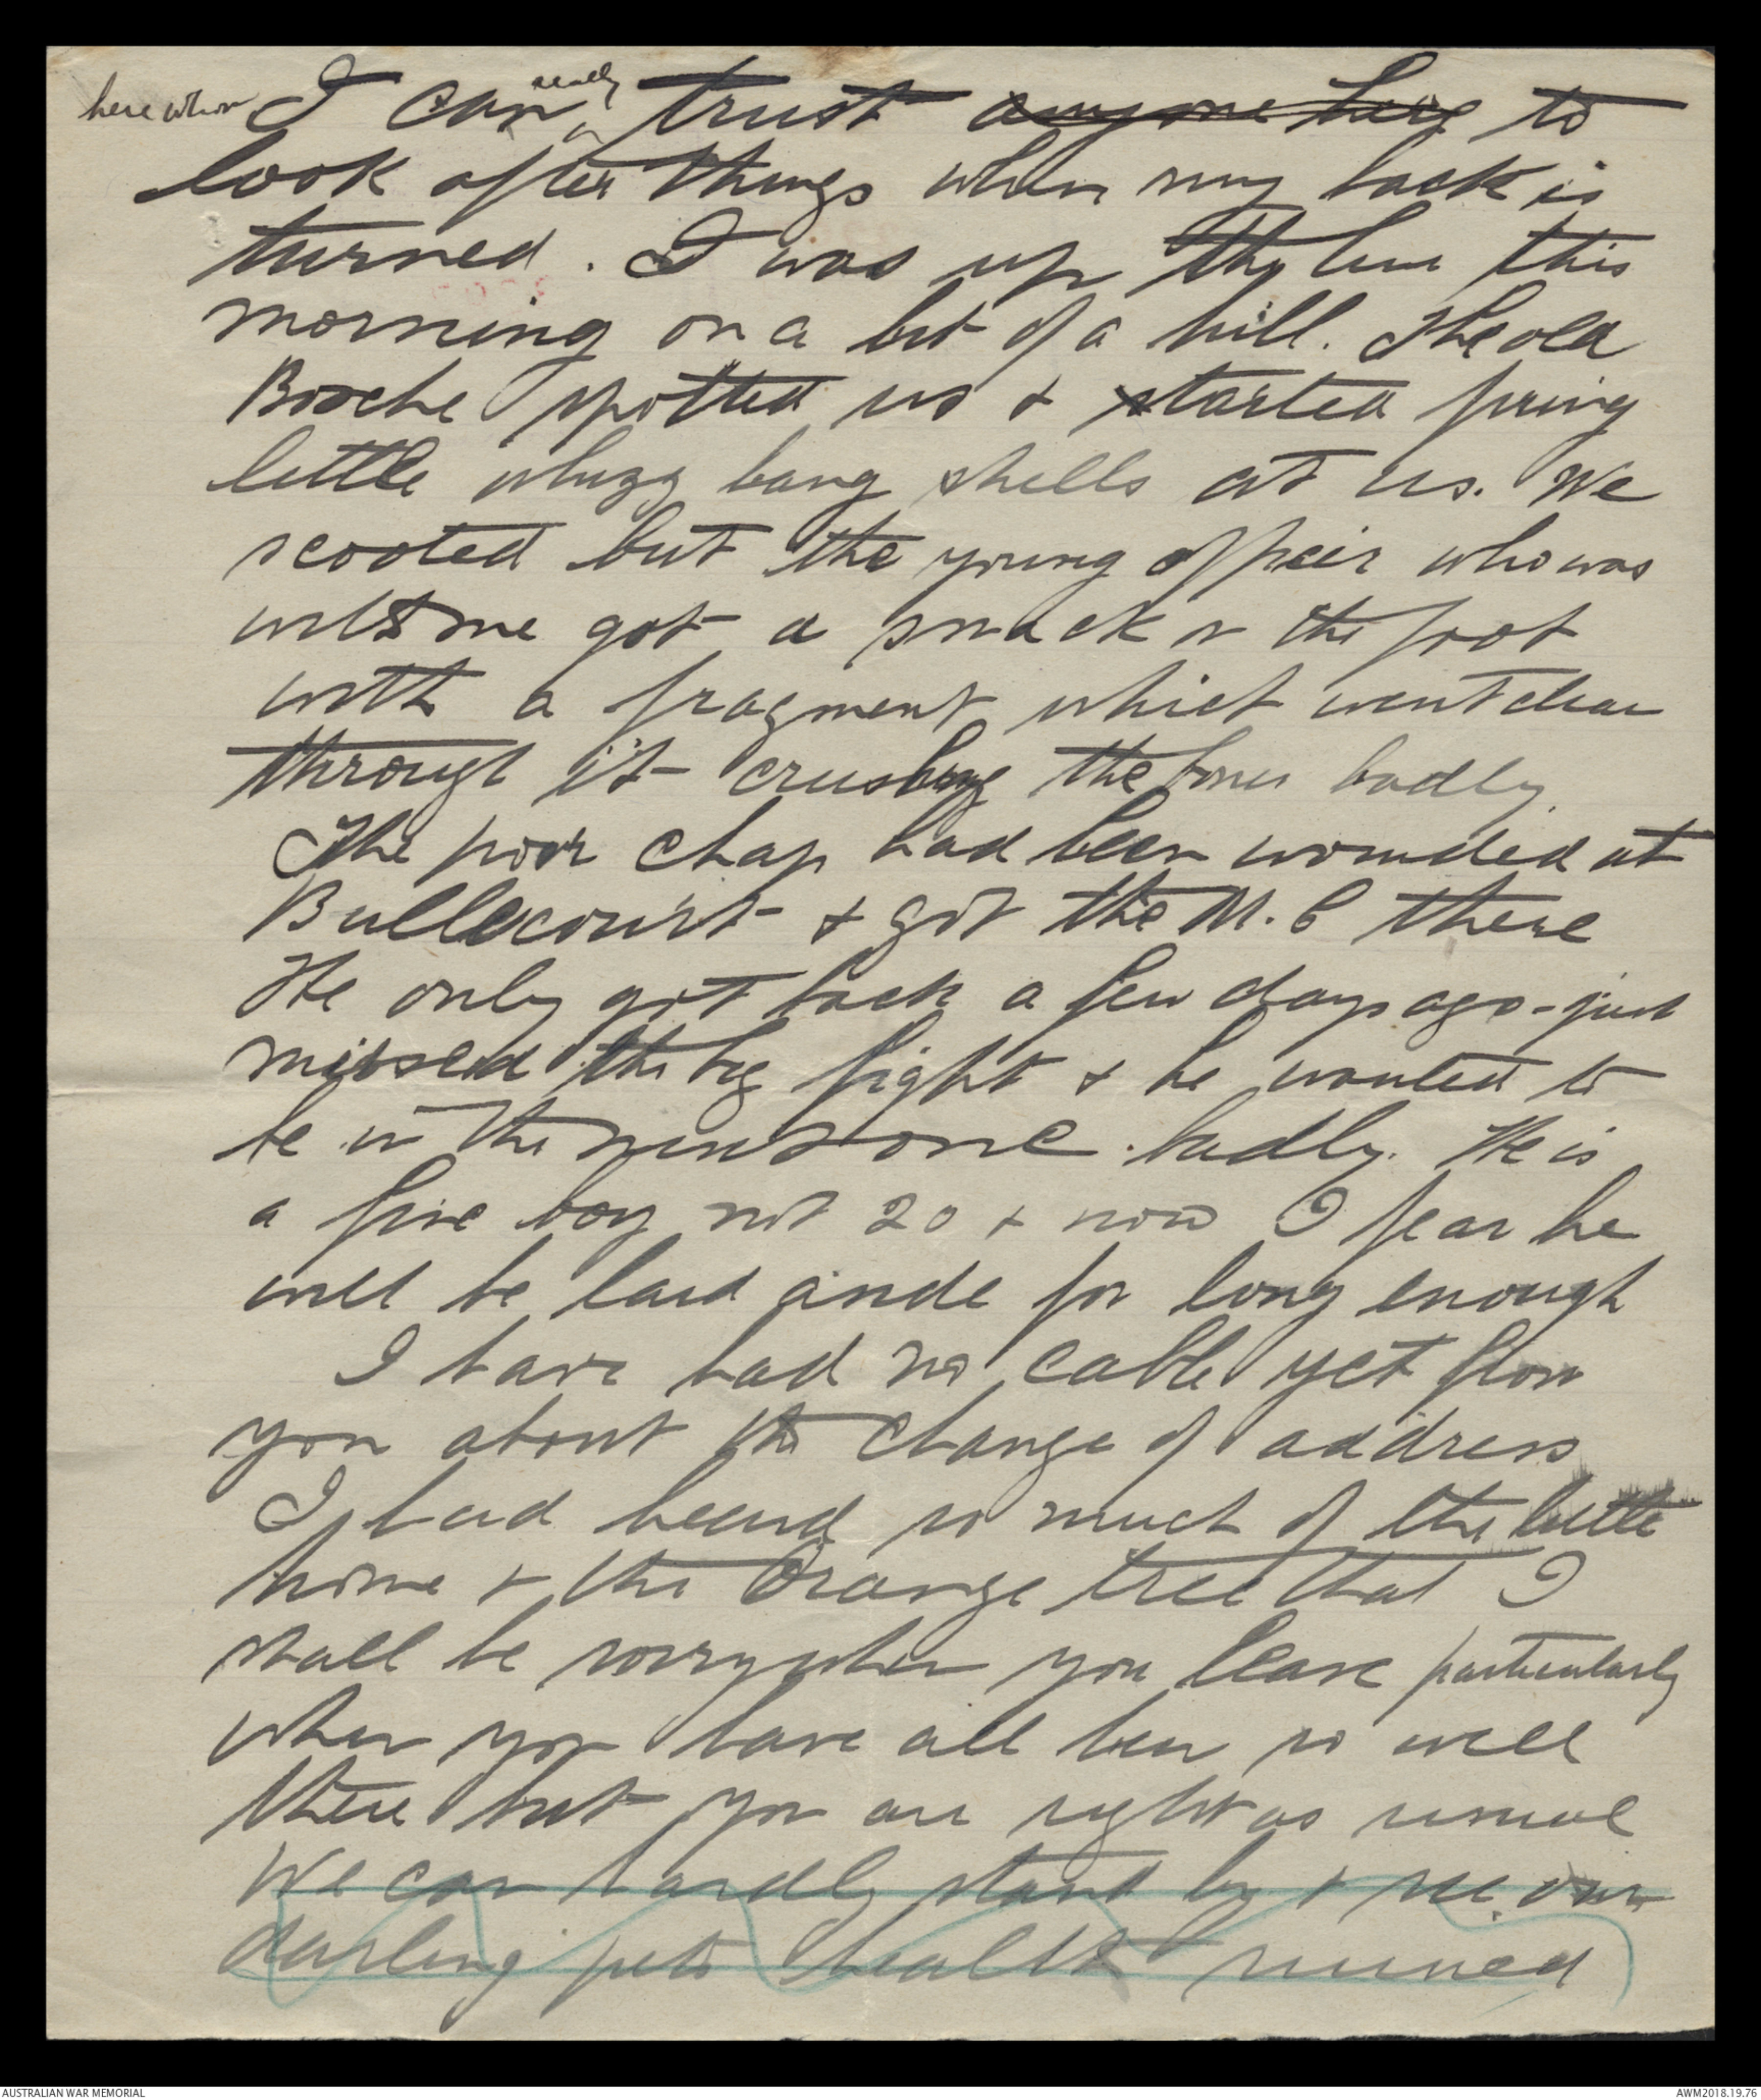 here whom I can really trust anyone here to
look after things when my back is
turned. I was up the line this
morning on a bit of a hill. The old
Bosche spotted us & started firing
little whizz bang shells at us. We
scooted but the young officer who was
with me got a smack in the foot
with a fragment which went clean
through it crushing the bones badly.
The poor chap had been wounded at
Bullecourt & got the M.C there
He only got back a few days ago - just
missed the big fight & he wanted to
be in the next one badly. He is
a fine boy not 20 & now I fear he
will be laid aside for long enough
I have had no cable yet from
you about the change of address
I had heard so much of the little
home & the Orange tree that I
shall be sorry when you leave particularly
when you have all been so well
there but you are right as usual
We can hardly stand by & see our
darling pets health ruined
AUSTRALIAN WAR MEMORIAL
AWM2018.19.76